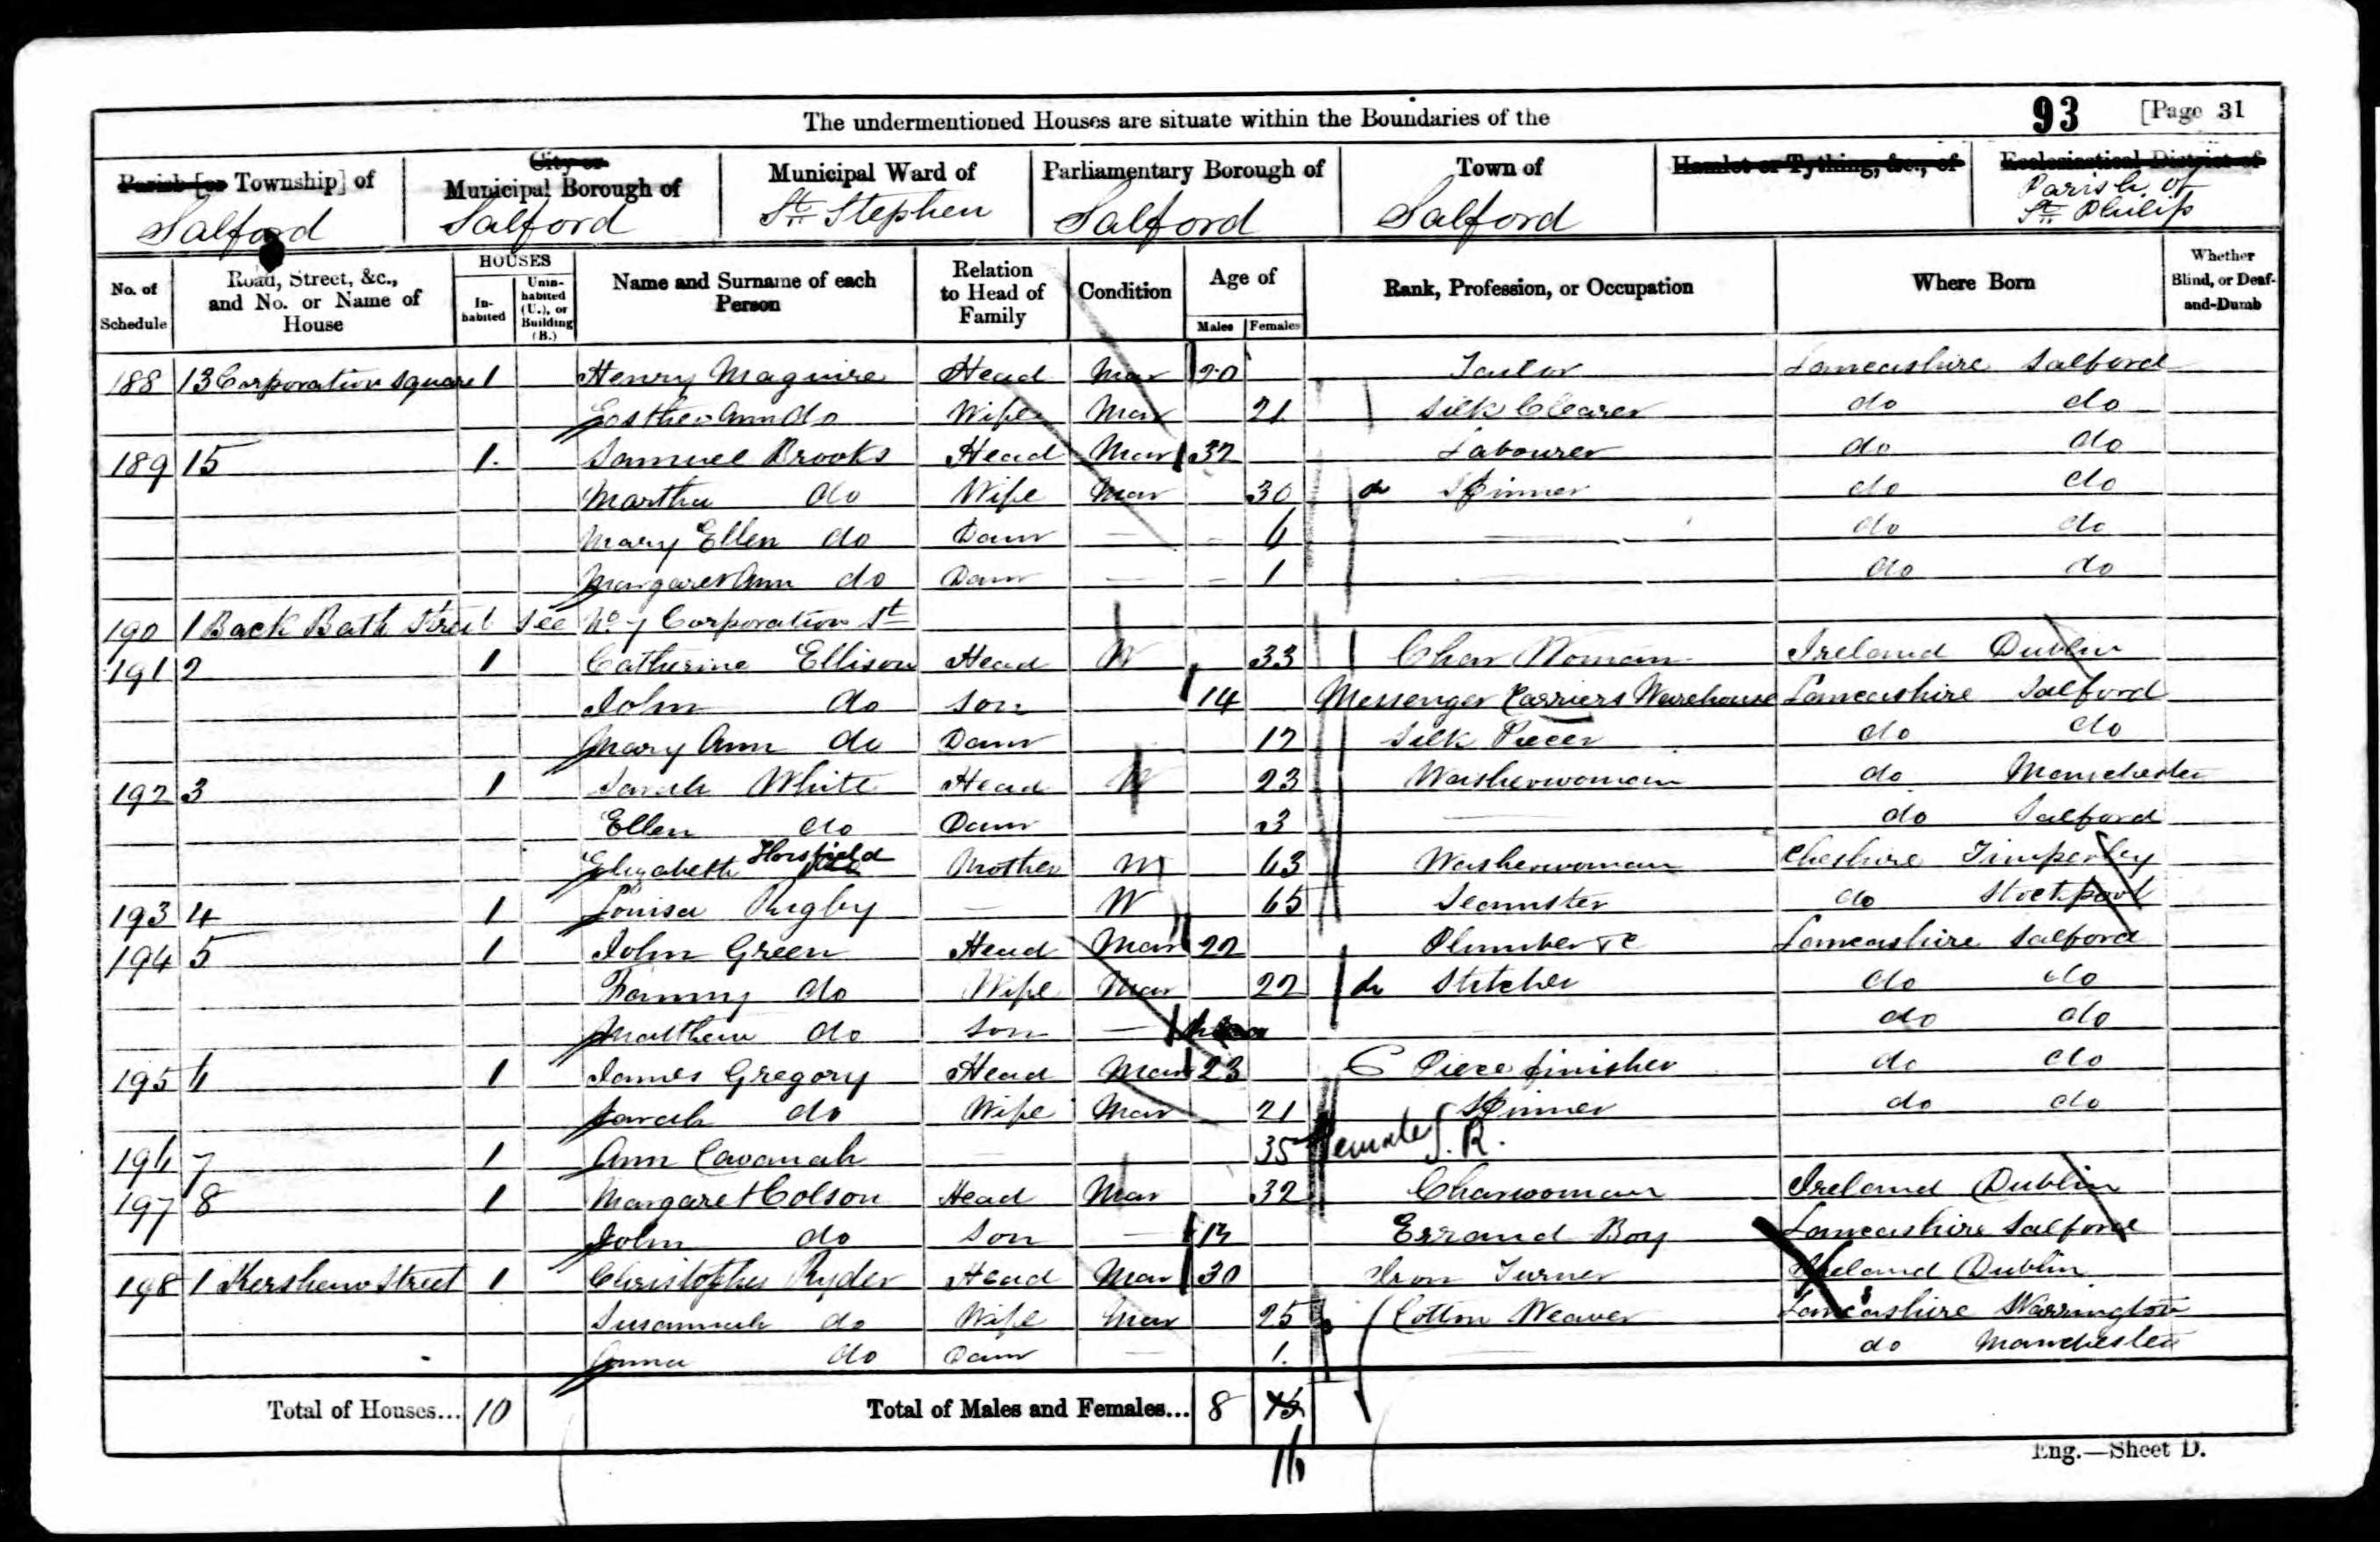 The undermentioned Houses are situate within the Boundaries of the
93 [Page 31
Parish [or Township] of City or Municipal Borough of Municipal Ward of Parliamentary Borough of Town of Hamlet or Tything, &c., of Ecclesiastical District of
Salford Salford St. Stephen Salford Salford Parish of St. Philip
No. of Schedule Road, Street, &c., and No. or Name of House HOUSES Inhabited Uninhabited (U.), or Building (B.) Name and Surname of each Person Relation to Head of Family Condition Age of Males Females Rank, Profession, or Occupation Where Born Whether Blind, or Deaf-and-Dumb
188 13 Corporation Square 1 Henry Maguire Head Mar 20 Tailor Lancashire Salford
Easther Ann do Wife Mar 21 Silk Clearer do do
189 15 1 Samuel Brooks Head Mar 32 Labourer do do
Martha do Wife Mar 30 Spinner do do
Mary Ellen do Daur 6 do do
Margaret Ann do Daur 1 do do
190 1 Back Bath Street See No 7 Corporation St
191 2 1 Catherine Ellison Head W 33 Char Woman Ireland Dublin
John do Son 14 Messenger Carriers Warehouse Lancashire Salford
Mary Ann do Daur 12 Silk Piecer do do
192 3 1 Sarah White Head W 23 Washerwoman do Manchester
Ellen do Daur 3 do Salford
Elizabeth Horsfield Mother M 63 Washerwoman Cheshire Timperley
193 4 1 Louisa Rigby W 65 Seamster do Stockport
194 5 1 John Green Head Mar 22 Plumber &c Lancashire Salford
Fanny do Wife Mar 22 Stitcher do do
Matthew do Son do do
195 6 1 James Gregory Head Mar 23 C Piece finisher do do
Sarah do Wife Mar 21 Spinner do do
196 7 1 Ann Cavanah 35 Female S. R.
197 8 1 Margaret Colson Head Mar 32 Charwoman Ireland Dublin
John do Son 12 Errand Boy Lancashire Salford
198 1 Kershaw Street 1 Christopher Ryder Head Mar 30 Iron Turner Ireland Dublin
Susannah do Wife Mar 25 Cotton Weaver Lancashire Warrington
Anna do Daur 1 do Manchester
Total of Houses... 10 Total of Males and Females... 8 15
16
Eng.—Sheet D.